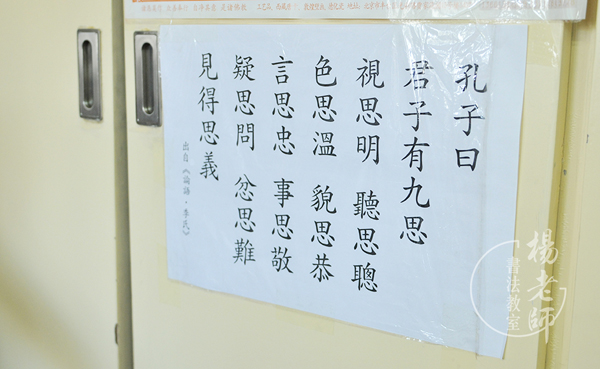 孔子曰
君子有九思
視思明 聽思聰
色思溫 貌思恭
言思忠 事思敬
疑思問 忿思難
見得思義
出自《論語·季氏》
楊老師
書法教室